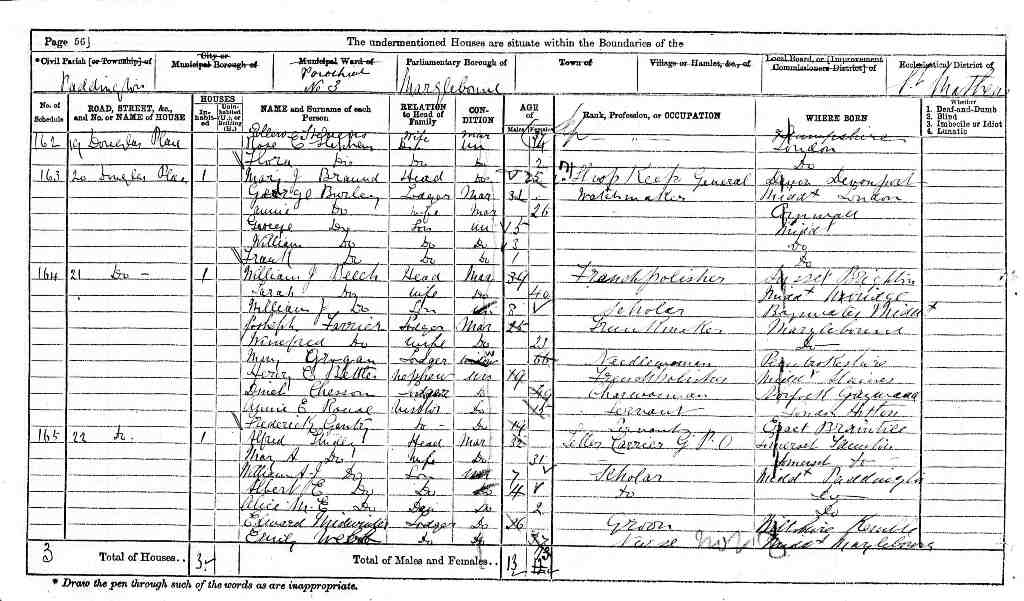 Page 56]
The undermentioned Houses are situate within the Boundaries of the
*Civil Parish [or Township] of
City or Municipal Borough of
Municipal Ward of
Parliamentary Borough of
Town of
Village or Hamlet, &c., of
Local Board, or [Improvement Commissioners District] of
Ecclesiastical District of
Paddington
Parochial No 3
Marylebone
St Matthew
No. of Schedule
ROAD, STREET, &c., and No. or NAME of HOUSE
HOUSES
Inhabited
Uninhabited (U.), or Building (B.)
NAME and Surname of each Person
RELATION to Head of Family
CONDITION
AGE of
Males
Females
Rank, Profession, or OCCUPATION
WHERE BORN
Whether
1. Deaf-and-Dumb
2. Blind
3. Imbecile or Idiot
4. Lunatic
Ellen Stephens Wife Mar Hampshire
162 19 Douglas Place Rose E Stephens Un 4 London
Flora Do Do Do 2 Do
163 20 Douglas Place 1 Mary J Braund Head Do 25 Shop Keep General Devon Devonport
George Burley Lodger Mar 32 Watchmaker Middx London
Annie Do Wife Mar 26 Cornwall
George Do Son Un 5 Midd
William Do Do Do 3 Do
Frank Do Do Do 1 Do
164 21 Do 1 William J Veech Head Mar 39 French polisher Brighton
Sarah Do Wife Do 40 Middx Uxbridge
William J Do Son 8 Scholar Bayswater Middx
Joseph Lodger Mar 25 Marylebone
Winifred Do Wife Do 23 Do
Mary Grogan Lodger Widow 66 Needlewoman Pembrokeshire
Nephew Un 19 French polisher Middx Staines
Chesson Lodger Do 49 Charwoman Norfolk
Annie E Rouse Visitor Do 15 Servant London
Frederick Gentry Do Do 19 Servant Essex Braintree
165 22 Do 1 Alfred Head Mar 32 Letter Carrier G P O Somerset Taunton
Mary A Do Wife Do 31 Somerset Do
William A J Do Son 7 Scholar Middx Paddington
Albert E Do Do Do 4 Do Do
Alice M E Do Daur Do 2 Do
Edward Midwinter Lodger Do 26 Groom Wiltshire Kemble
Emily Webb Do Nurse Middx Marylebone
3 Total of Houses.. 3 Total of Males and Females.. 13 13
* Draw the pen through such of the words as are inappropriate.